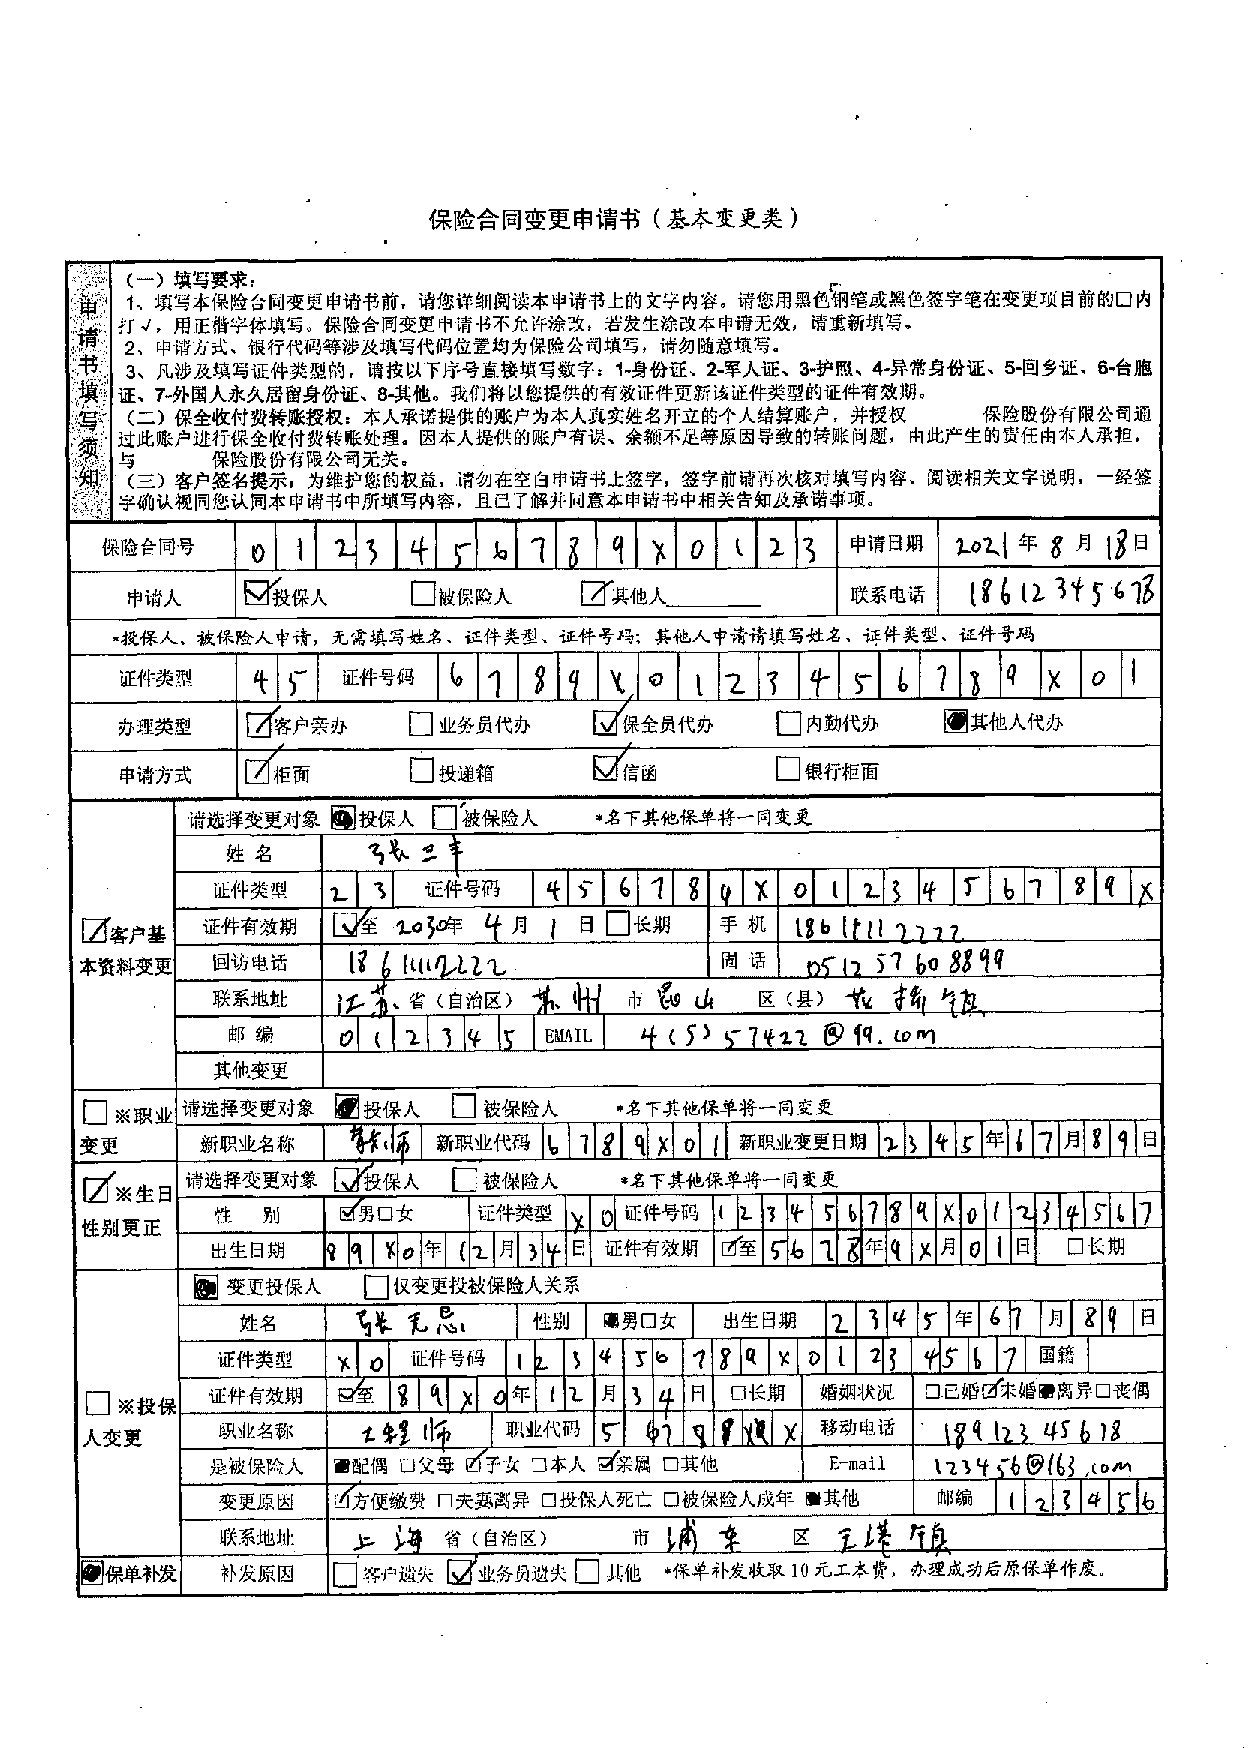 保险合同变更申请书（基本变更类）
申请书填写须知
（一）填写要求：
1、填写本保险合同变更申请书前，请您详细阅读本申请书上的文字内容。请您用黑色钢笔或黑色签字笔在变更项目前的□内
打√，用正楷字体填写。保险合同变更申请书不允许涂改，若发生涂改本申请无效，请重新填写。
2、申请方式、银行代码等涉及填写代码位置均为保险公司填写，请勿随意填写。
3、凡涉及填写证件类型的，请按以下序号直接填写数字：1-身份证、2-军人证、3-护照、4-异常身份证、5-回乡证、6-台胞
证、7-外国人永久居留身份证、8-其他。我们将以您提供的有效证件更新该证件类型的证件有效期。
（二）保全收付费转账授权：本人承诺提供的账户为本人真实姓名开立的个人结算账户，并授权 保险股份有限公司通
过此账户进行保全收付费转账处理。因本人提供的账户有误、余额不足等原因导致的转账问题，由此产生的责任由本人承担，
与 保险股份有限公司无关。
（三）客户签名提示：为维护您的权益，请勿在空白申请书上签字，签字前请再次核对填写内容、阅读相关文字说明，一经签
字确认视同您认同本申请书中所填写内容，且已了解并同意本申请书中相关告知及承诺事项。
保险合同号 0 1 2 3 4 5 6 7 8 9 X 0 1 2 3 申请日期 2021年8月18日
申请人 ☑投保人 □被保险人 ☑其他人 联系电话 18612345678
*投保人、被保险人申请，无需填写姓名、证件类型、证件号码；其他人申请请填写姓名、证件类型、证件号码
证件类型 4 5 证件号码 6 7 8 9 X 0 1 2 3 4 5 6 7 8 9 X 0 1
办理类型 ☑客户亲办 □业务员代办 ☑保全员代办 □内勤代办 ■其他人代办
申请方式 ☑柜面 □投递箱 ☑信函 □银行柜面
☑客户基本资料变更 请选择变更对象 ■投保人 □被保险人 *名下其他保单将一同变更
姓名 张三丰
证件类型 2 3 证件号码 4 5 6 7 8 9 X 0 1 2 3 4 5 6 7 8 9 X
证件有效期 ☑至 2030年4月1日 □长期 手机 18611112222
回访电话 18611112222 固话 051257608899
联系地址 江苏 省（自治区） 苏州 市 昆山 区（县） 花桥镇
邮编 0 1 2 3 4 5 EMAIL 415557422@qq.com
其他变更
□※职业变更 请选择变更对象 ■投保人 □被保险人 *名下其他保单将一同变更
新职业名称 教师 新职业代码 6 7 8 9 X 0 1 新职业变更日期 2 3 4 5年6 7月8 9日
☑※生日性别更正 请选择变更对象 ☑投保人 □被保险人 *名下其他保单将一同变更
性别 ☑男□女 证件类型 X 0 证件号码 1 2 3 4 5 6 7 8 9 X 0 1 2 3 4 5 6 7
出生日期 8 9 X 0年1 2月3 4日 证件有效期 ☑至 5 6 7 8年9 X月0 1日 □长期
□※投保人变更 ■变更投保人 □仅变更投被保险人关系
姓名 张无忌 性别 ■男□女 出生日期 2 3 4 5年6 7月8 9日
证件类型 X 0 证件号码 1 2 3 4 5 6 7 8 9 X 0 1 2 3 4 5 6 7 国籍
证件有效期 ☑至 8 9 X 0年1 2月3 4日 □长期 婚姻状况 □已婚☑未婚■离异□丧偶
职业名称 工程师 职业代码 5 6 7 8 X 移动电话 18912345678
是被保险人 ■配偶 □父母 ☑子女 □本人 ☑亲属 □其他 E-mail 123456@163.com
变更原因 ☑方便缴费 □夫妻离异 □投保人死亡 □被保险人成年 ■其他 邮编 1 2 3 4 5 6
联系地址 上海 省（自治区） 市 浦东 区 王港镇
■保单补发 补发原因 □客户遗失 ☑业务员遗失 □其他 *保单补发收取10元工本费，办理成功后原保单作废。